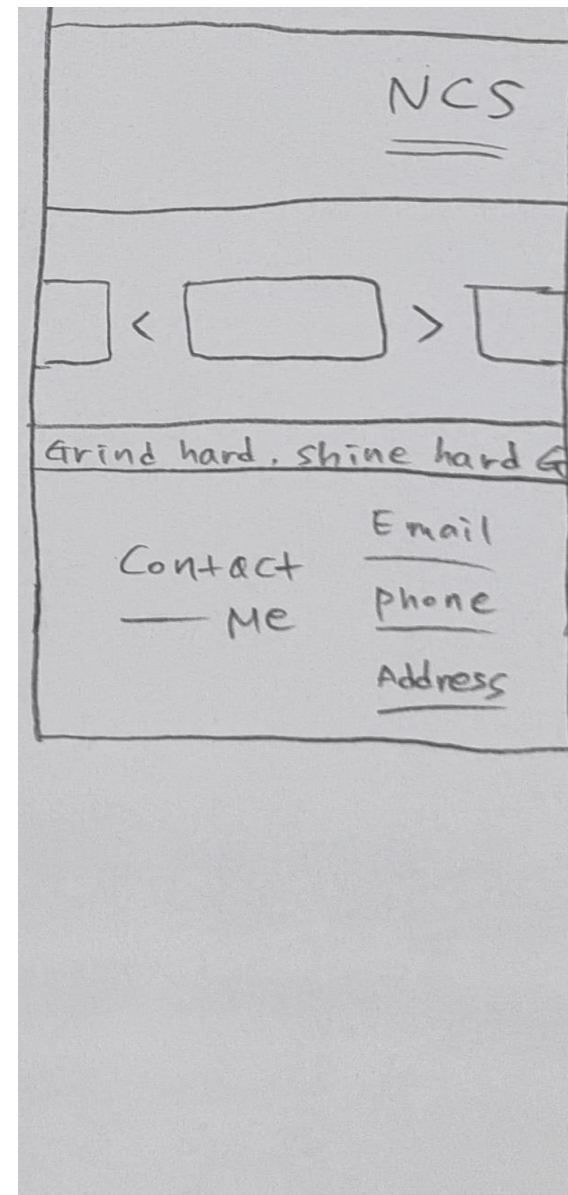 NCS
< >
Grind hard. Shine hard G
Contact
Me
Email
Phone
Address